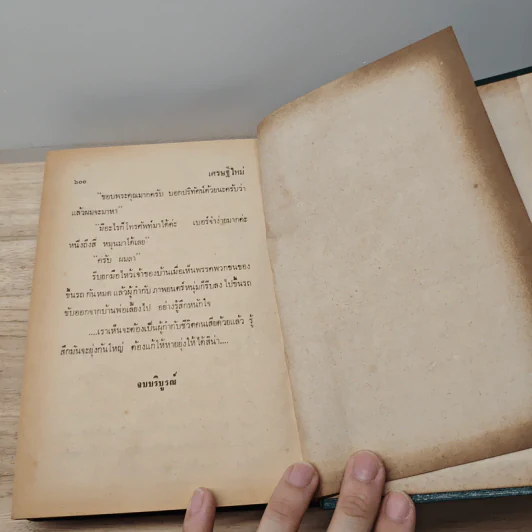 ๖๐๐ เศรษฐีใหม่
"ขอบพระคุณมากครับ บอกปริทัศน์ด้วยนะครับว่า
แล้วผมจะมาหา"
"มีอะไรก็โทรศัพท์มาได้ค่ะ เบอร์จำง่ายมากค่ะ
หนึ่งถึงสี่ หมุนมาได้เลย"
"ครับ ผมลา"
รีบยกมือไหว้เจ้าของบ้านเมื่อเห็นพรรคพวกขนของ
ขึ้นรถกันหมด แล้วผู้กำกับภาพยนตร์หนุ่มก็รีบลง ไปขึ้นรถ
ขับออกจากบ้านพ่อเลี้ยงไป อย่างรู้สึกหนักใจ
....เราเห็นจะต้องเป็นผู้กำกับชีวิตคนเสียด้วยแล้ว รู้
สึกมันจะยุ่งกันใหญ่ ต้องแก้ให้หายยุ่งให้ได้สิน่า....
จบบริบูรณ์